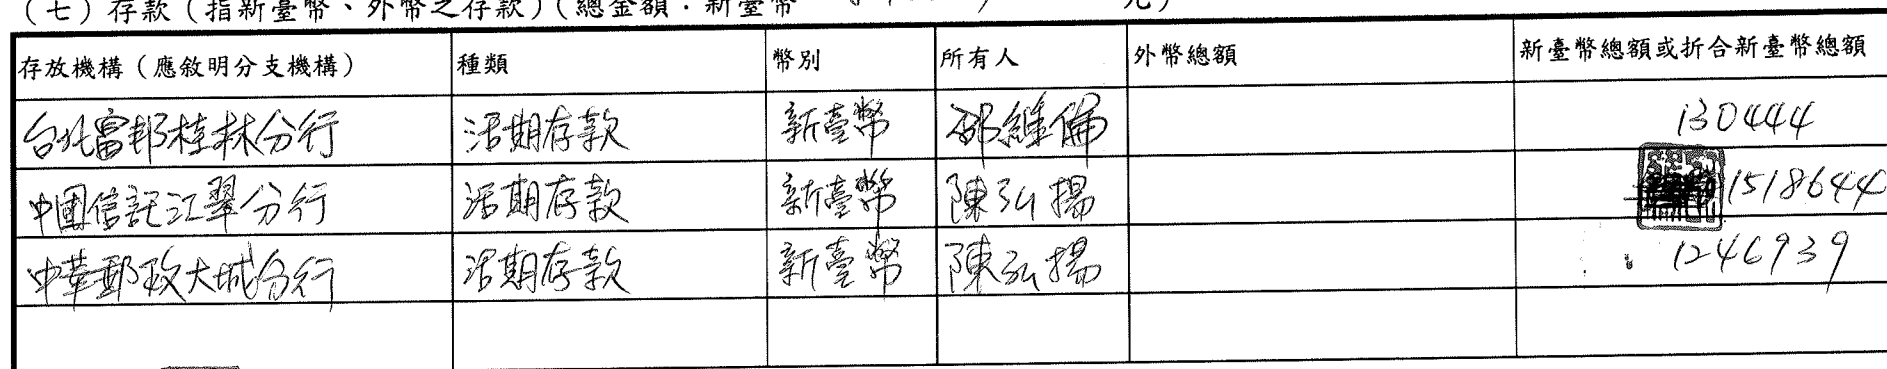 (七)存款(指新臺幣、外幣之存款)(總金額:新臺幣 元)
存放機構(應敘明分支機構) 種類 幣別 所有人 外幣總額 新臺幣總額或折合新臺幣總額
台北富邦桂林分行 活期存款 新臺幣 邵維倫 130444
中國信託江翠分行 活期存款 新臺幣 陳弘揚 1518644
中華郵政大城分行 活期存款 新臺幣 陳弘揚 1246939